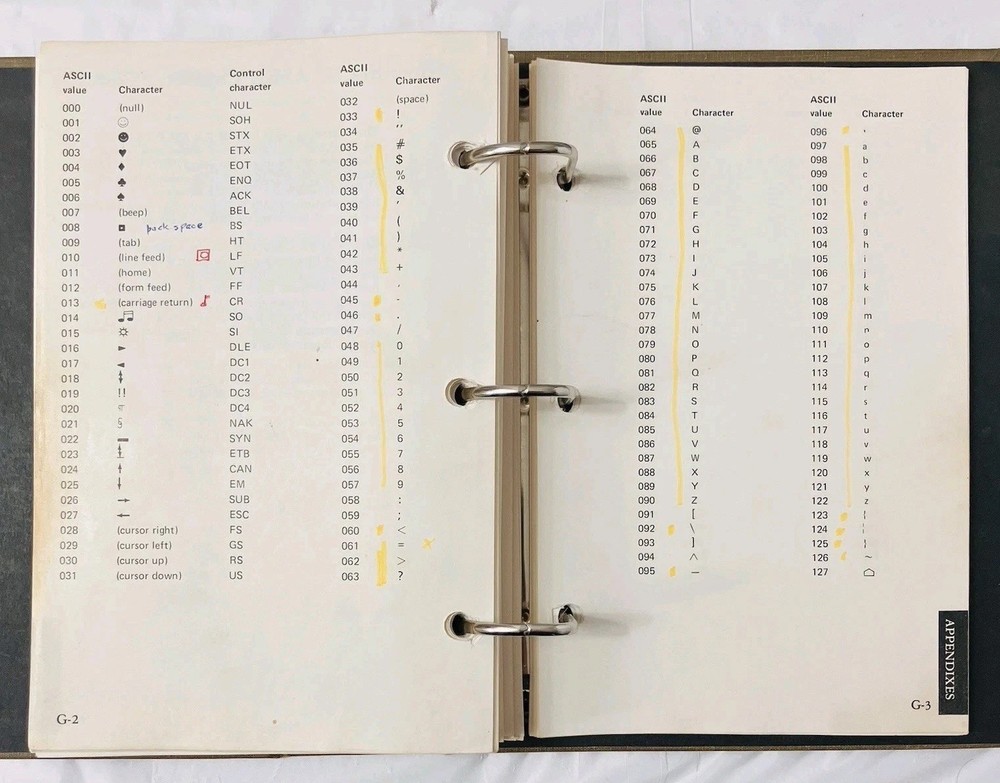 ASCII Control
value Character character
000 (null) NUL
001 ☺ SOH
002 ☻ STX
003 ♥ ETX
004 ♦ EOT
005 ♣ ENQ
006 ♠ ACK
007 (beep) BEL
008 ◘ back space BS
009 (tab) HT
010 (line feed) LF
011 (home) VT
012 (form feed) FF
013 (carriage return) CR
014 ♫ SO
015 ☼ SI
016 ► DLE
017 ◄ DC1
018 ↕ DC2
019 !! DC3
020 ¶ DC4
021 § NAK
022 ▬ SYN
023 ↨ ETB
024 ↑ CAN
025 ↓ EM
026 → SUB
027 ← ESC
028 (cursor right) FS
029 (cursor left) GS
030 (cursor up) RS
031 (cursor down) US
ASCII
value Character
032 (space)
033 !
034 ''
035 #
036 $
037 %
038 &
039 '
040 (
041 )
042 *
043 +
044 ,
045 -
046 .
047 /
048 0
049 1
050 2
051 3
052 4
053 5
054 6
055 7
056 8
057 9
058 :
059 ;
060 <
061 =
062 >
063 ?
G-2
ASCII
value Character
064 @
065 A
066 B
067 C
068 D
069 E
070 F
071 G
072 H
073 I
074 J
075 K
076 L
077 M
078 N
079 O
080 P
081 Q
082 R
083 S
084 T
085 U
086 V
087 W
088 X
089 Y
090 Z
091 [
092 \
093 ]
094 ∧
095 —
ASCII
value Character
096 '
097 a
098 b
099 c
100 d
101 e
102 f
103 g
104 h
105 i
106 j
107 k
108 l
109 m
110 n
111 o
112 p
113 q
114 r
115 s
116 t
117 u
118 v
119 w
120 x
121 y
122 z
123 {
124 ¦
125 }
126 ~
127 ⌂
APPENDIXES
G-3